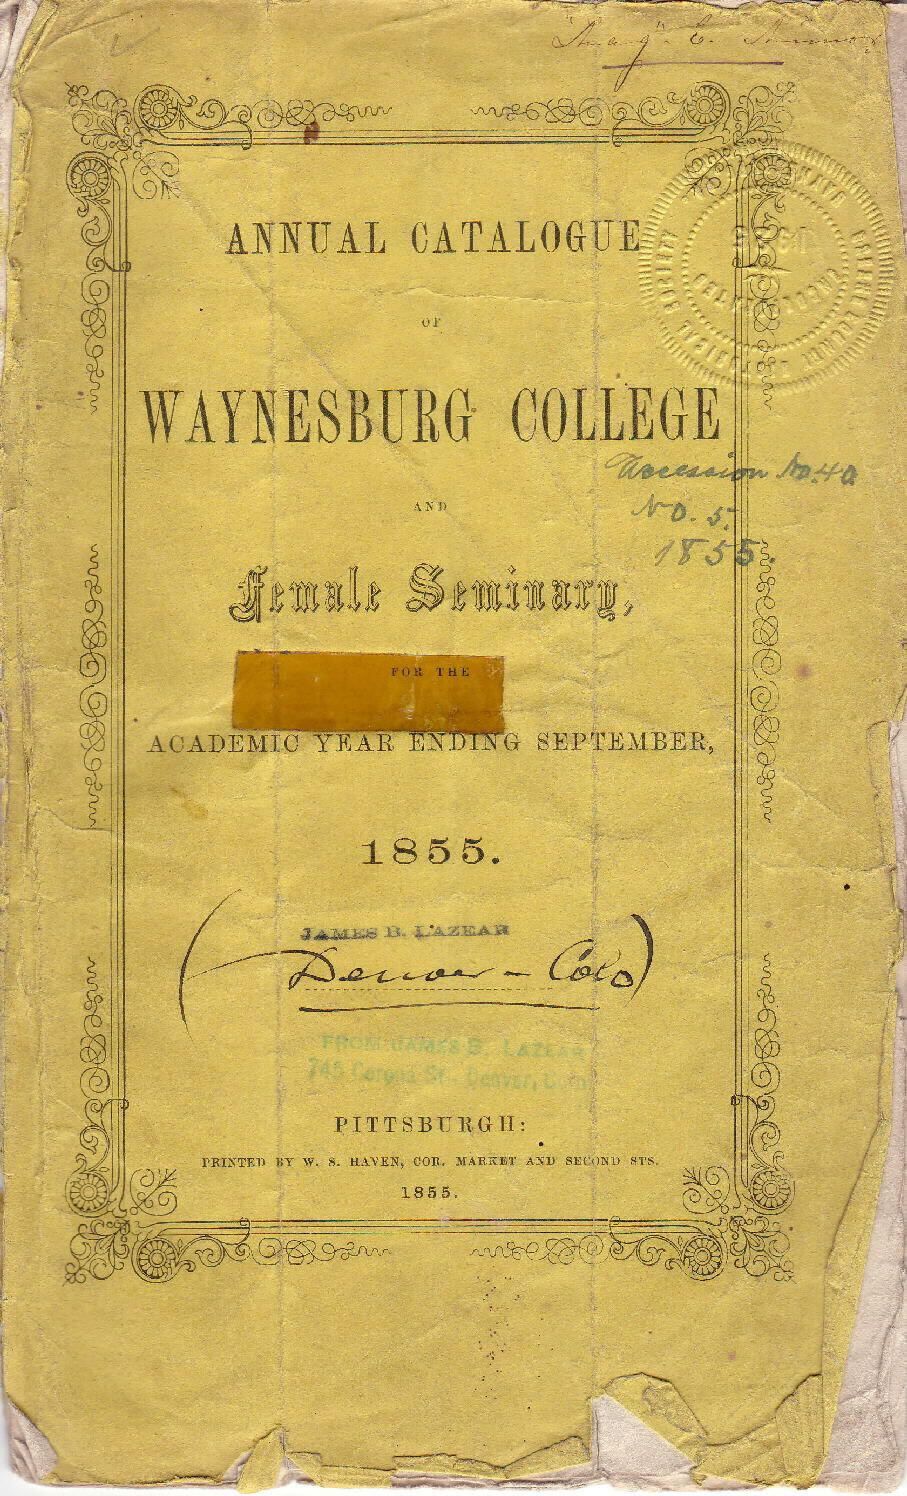 ANNUAL CATALOGUE
OF
WAYNESBURG COLLEGE
Accession No. 40
AND
No. 5.
1855.
Female Seminary,
FOR THE
ACADEMIC YEAR ENDING SEPTEMBER,
1855.
JAMES B. LAZEAR
(Denver - Colo)
FROM JAMES B. LAZEAR
745 Corona St. Denver, Colo
PITTSBURGH:
PRINTED BY W. S. HAVEN, COR. MARKET AND SECOND STS.
1855.